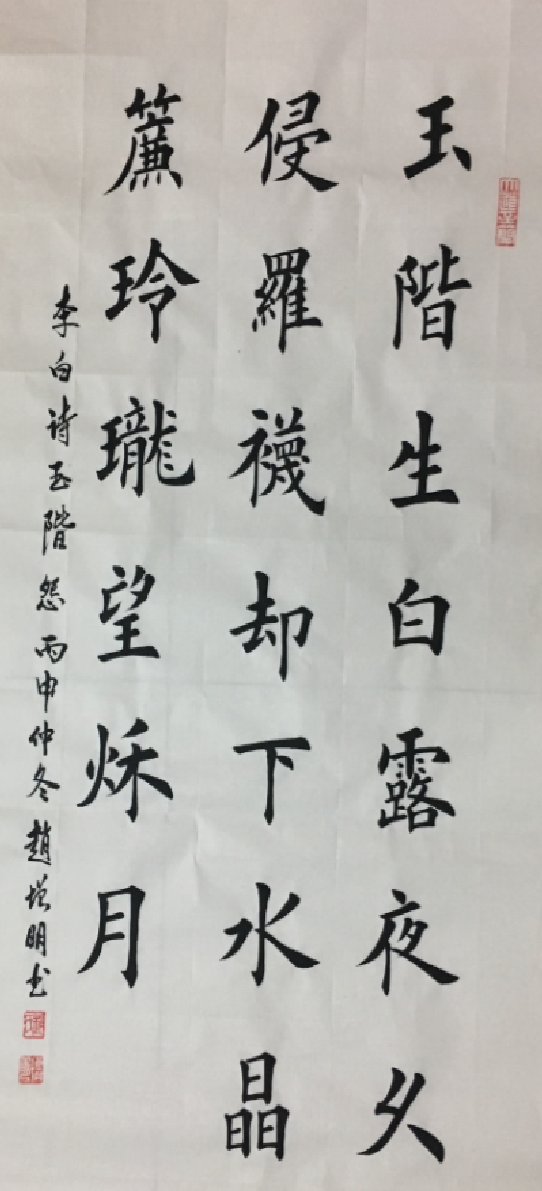 玉階生白露夜久
侵羅襪却下水晶
簾玲瓏望秌月
李白诗玉階怨丙申仲冬趙增明书